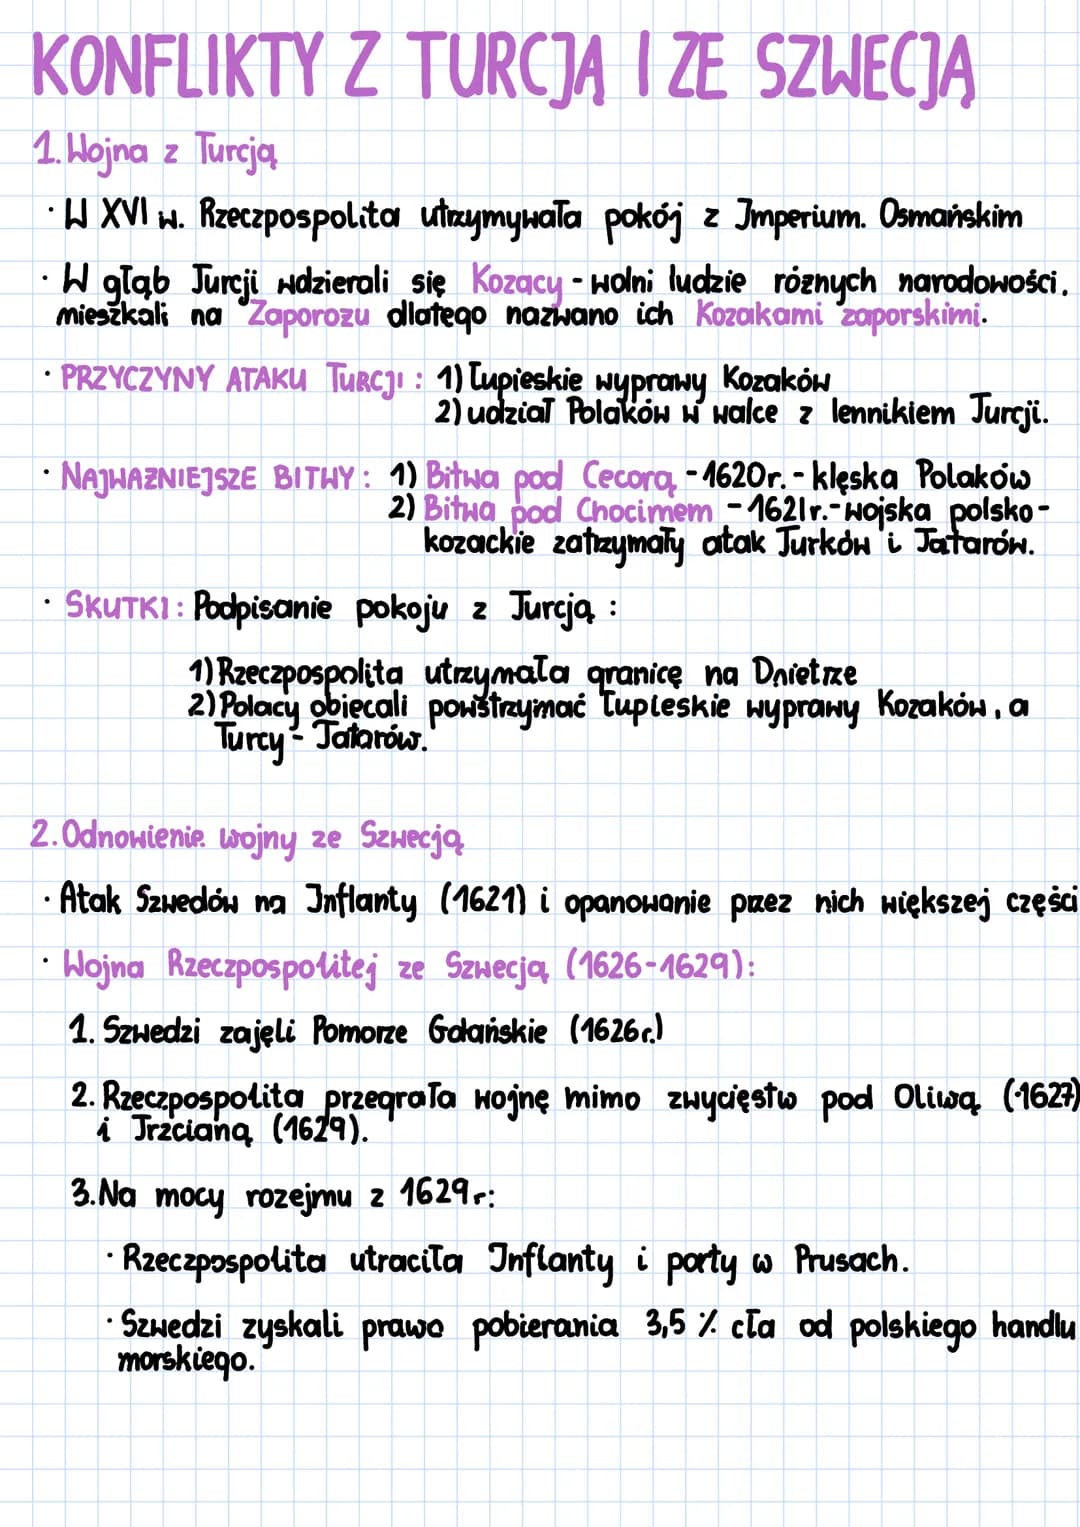 KONFLIKTY Z TURCJĄ I ZE SZWECJĄ
1. Wojna z Turcją
· W XVI w. Rzeczpospolita utrzymywała pokój z Imperium. Osmańskim
· W głąb Turcji wdzierali się Kozacy - wolni ludzie różnych narodowości.
mieszkali na Zaporożu dlatego nazwano ich Kozakami zaporskimi.
· PRZYCZYNY ATAKU TURCJI: 1) Łupieskie wyprawy Kozaków
2) udział Polaków w walce z lennikiem Turcji.
· NAJWAŻNIEJSZE BITWY: 1) Bitwa pod Cecorą - 1620r. - klęska Polaków
2) Bitwa pod Chocimem - 1621r.- wojska polsko-
kozackie zatrzymały atak Turków i Tatarów.
· SKUTKI: Podpisanie pokoju z Turcją:
1) Rzeczpospolita utrzymała granicę na Dnietrze
2) Polacy obiecali powstrzymać łupieskie wyprawy Kozaków, a
Turcy - Tatarów.
2. Odnowienie wojny ze Szwecją
· Atak Szwedów na Inflanty (1621) i opanowanie przez nich większej części
· Wojna Rzeczpospolitej ze Szwecją (1626-1629):
1. Szwedzi zajęli Pomorze Gdańskie (1626r.)
2. Rzeczpospolita przegrała wojnę mimo zwycięstw pod Oliwą (1627)
i Trzcianą (1629).
3. Na mocy rozejmu z 1629r:
· Rzeczpospolita utraciła Inflanty i porty w Prusach.
· Szwedzi zyskali prawo pobierania 3,5 % cła od polskiego handlu
morskiego.